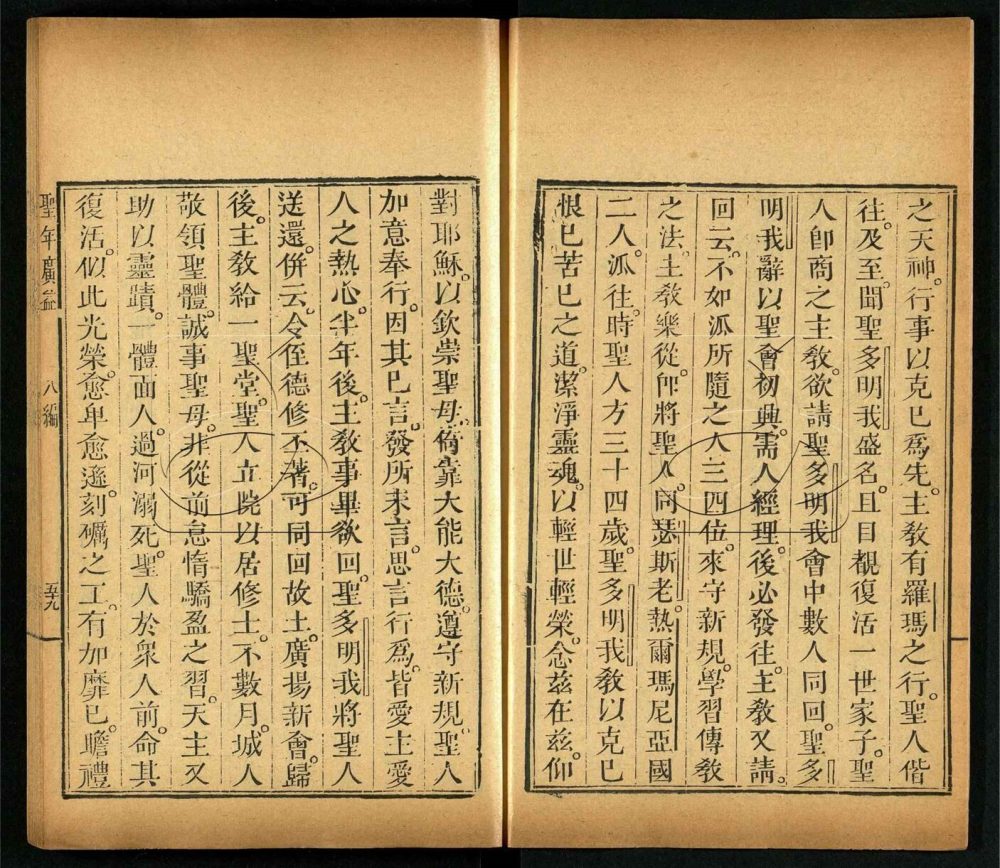 之天神。行事以克己爲先。主敎有羅瑪之行。聖人偕
往。及至。聞聖多明我盛名。且目覩復活一世家子。聖
人卽商之主敎。欲請聖多明我會中數人同回。聖多
明我辭以聖會初興。需人經理。後必發往。主敎又請。
回云。不如派所隨之人三四位。來守新規。學習傳敎
之法。主敎樂從。卽將聖人。同瑟斯老。熱爾瑪尼亞國
二人。派往。時聖人方三十四歲。聖多明我敎以克己
恨己苦己之道。潔淨靈魂。以輕世輕榮。念茲在茲。仰
對耶穌。以欽崇聖母。倚靠大能大德。遵守新規。聖人
加意奉行。因其已言。發所未言。思言行爲。皆愛主愛
人之熱心。半年後。主敎事畢欲回。聖多明我將聖人
送還。併云。令侄德修丕著。可同回故土。廣揚新會。歸
後。主敎給一聖堂。聖人立院以居修士。不數月。城人
敬領聖體。誠事聖母。非從前怠惰驕盈之習。天主又
助以靈蹟。一體面人。過河溺死。聖人於衆人前。命其
復活。似此光榮。愈卑愈遜。刻礪之工。有加靡已。瞻禮
聖年廣益 八編 五九